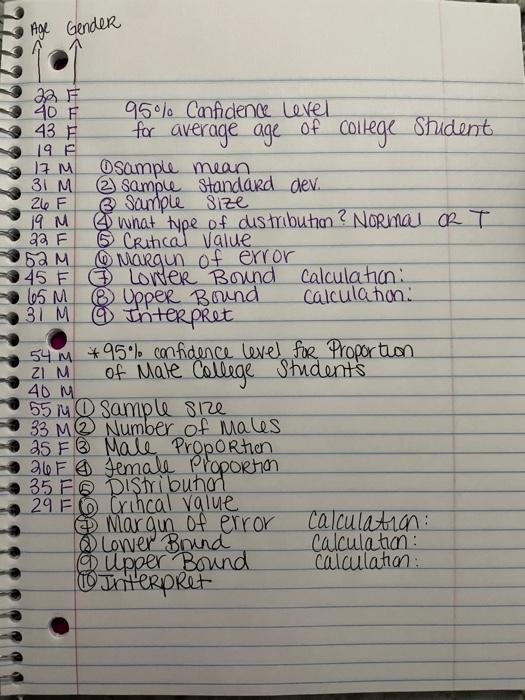 Age Gender
22 F
40 F 95% Confidence Level
43 F for average age of college Student
19 F
17 M ① sample mean
31 M ② Sample Standard dev.
26 F ③ Sample Size
19 M ④ what type of distribution? Normal OR T
22 F ⑤ Critical Value
52 M ⑥ Margin of error
45 F ⑦ Lower Bound Calculation:
65 M ⑧ Upper Bound Calculation:
31 M ⑨ Interpret
54 M * 95% confidence level for Proportion
21 M of Male College Students
40 M
55 M ① Sample Size
33 M ② Number of Males
25 F ③ Male Proportion
26 F ④ Female Proportion
35 F ⑤ Distribution
29 F ⑥ Critical value
⑦ Margin of error Calculation:
⑧ Lower Bound Calculation:
⑨ Upper Bound Calculation:
⑩ Interpret